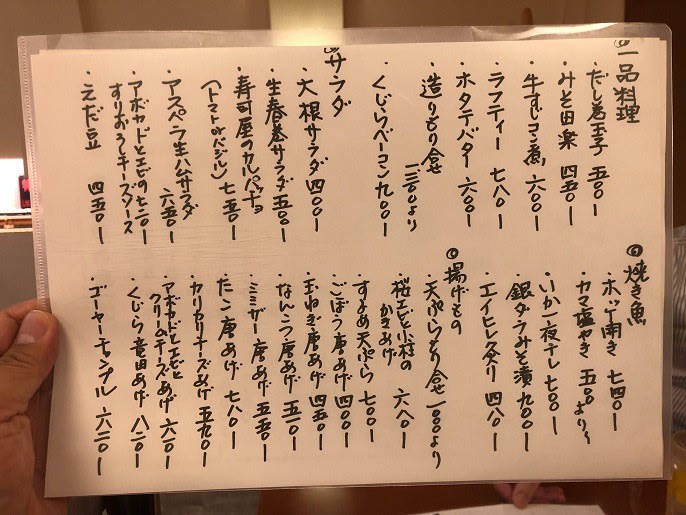 ◎一品料理
・だし巻玉子 五〇〇ー
・みそ田楽 四五〇ー
・牛すじコン煮 六〇〇ー
・ラフティー 七八〇ー
・ホタテバター 六〇〇ー
・造りもり合せ
一三〇〇より
・くじらベーコン 九〇〇ー
◎サラダ
・大根サラダ 四〇〇ー
・生春巻サラダ 五〇〇ー
・寿司屋のカルパッチョ
(トマトorバジル) 七五〇ー
・アスペラ生ハムサラダ
六五〇ー
・アボカドとエビの 七二〇ー
すりおろしチーズソース
・えだ豆 四五〇ー
◎焼き魚
・ホッケ開き 七四〇ー
・カマ塩やき 五〇〇より〜
・いか一夜干し 七〇〇ー
・銀ダラみそ漬 九〇〇ー
・エイヒレ炙り 四八〇ー
◎揚げもの
・天ぷらもり合せ 一〇〇〇より
・桜エビと小柱の
かきあげ 六八〇ー
・するめ天ぷら 七〇〇ー
・ごぼう唐あげ 四〇〇ー
・玉ねぎ唐あげ 四五〇ー
・なんこつ唐あげ 五二〇ー
・ミミガー唐あげ 五五〇ー
・たこ唐あげ 七八〇ー
・カリカリチーズあげ 五九〇ー
・アボカドとエビと
クリームチーズあげ 六二〇ー
・くじら竜田あげ 八二〇ー
・ゴーヤーチャンプル 六二〇ー